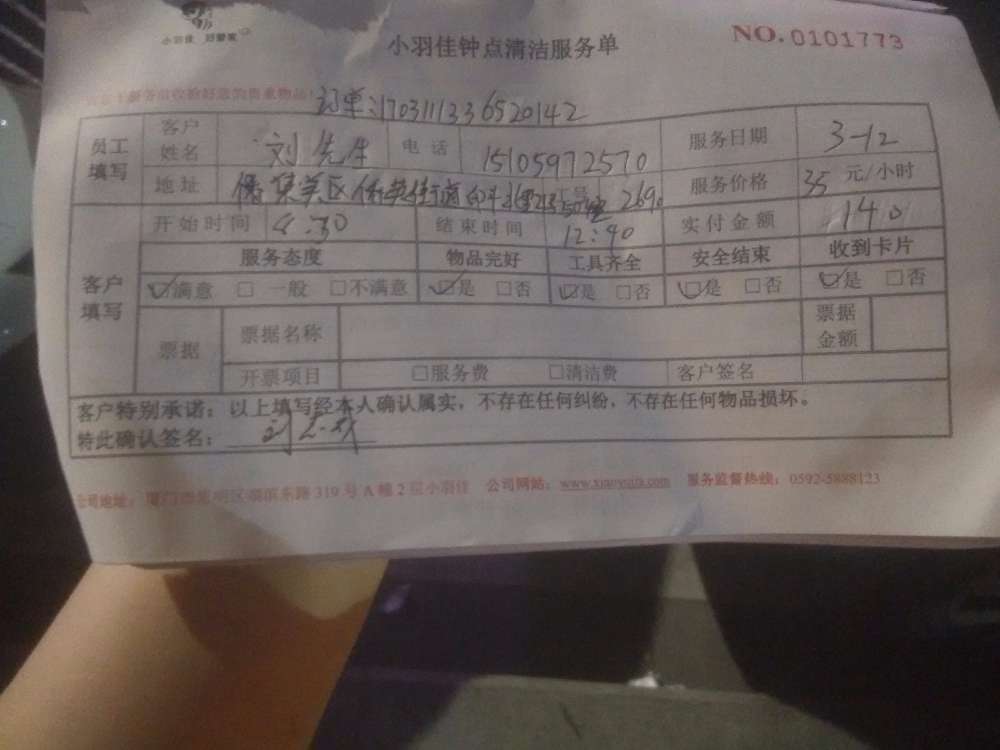 小羽佳 好管家
小羽佳钟点清洁服务单
NO. 0101773
服务前请收拾好您的贵重物品!
订单:1703111336520142
员工填写 客户姓名 刘先生 电话 15105972570 服务日期 3-12
地址 集美区侨英街道 工号 2690 服务价格 35 元/小时
客户填写 开始时间 8.30 结束时间 12:40 实付金额 140
服务态度 物品完好 工具齐全 安全结束 收到卡片
☑满意 □一般 □不满意 ☑是 □否 ☑是 □否 ☑是 □否 ☑是 □否
票据 票据名称 票据金额
开票项目 □服务费 □清洁费 客户签名
客户特别承诺：以上填写经本人确认属实，不存在任何纠纷，不存在任何物品损坏。
特此确认签名：
公司地址：厦门市思明区湖滨东路 319 号 A 幢 2 层小羽佳 公司网站：www.xiaoyujia.com 服务监督热线：0592-5888123